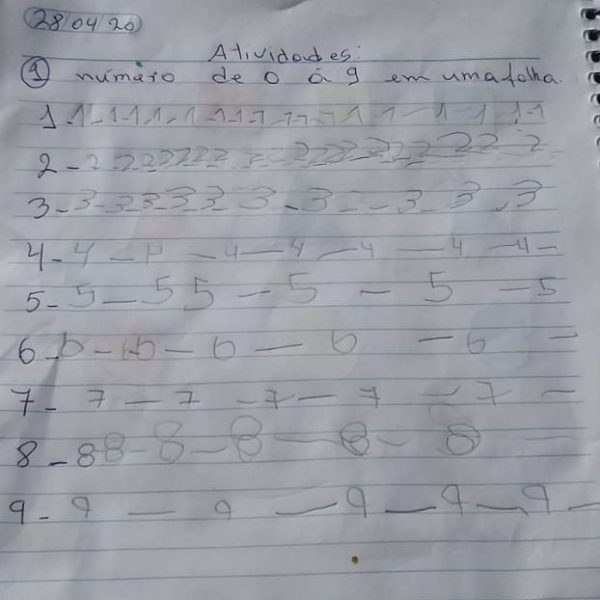 28/04/20
Atividades:
1 número de 0 á 9 em uma folha.
1 1-1-1-1-1-1-1-1-1-1-1-1-1-1-1
2 - 2 2 2 2 2 2 2 2 2 2 2 2 2 2 2 2
3 - 3 - 3 3 3 3 3 - 3 - - 3 - 3 3
4 - 4 - 4 - 4 - 4 - 4 - 4 - 4 -
5 - 5 - 5 5 - 5 - 5 - 5
6 - 6 - 6 - 6 - 6 - 6 -
7 - 7 - 7 - 7 - 7 - 7 -
8 - 8 8 - 8 - 8 - 8 - 8 -
9 - 9 - 9 - 9 - 9 - 9 -